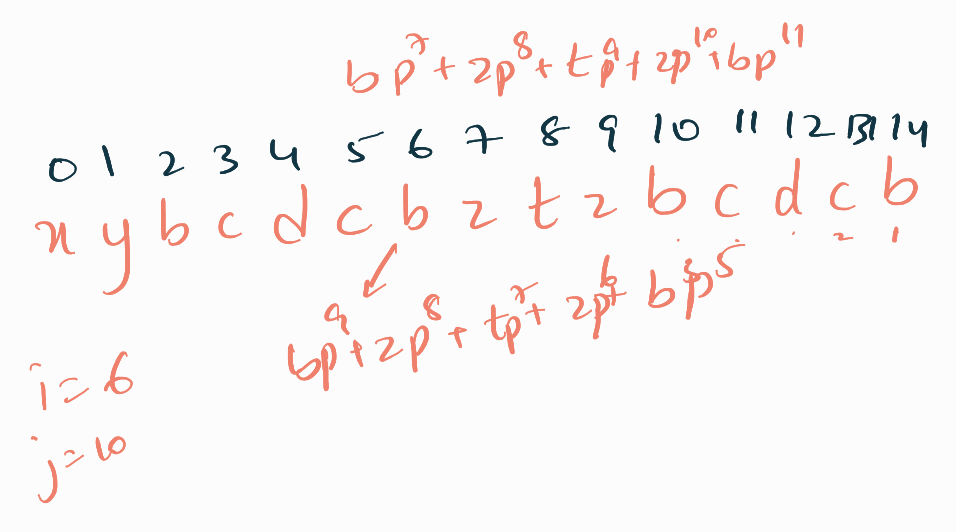 bp⁷ + zp⁸ + tp⁹ + zp¹⁰ + bp¹¹
0 1 2 3 4 5 6 7 8 9 10 11 12 13 14
x y b c d c b z t z b c d c b
2 1
bp⁹ + zp⁸ + tp⁷ + zp⁶ + bp⁵
i = 6
j = 10